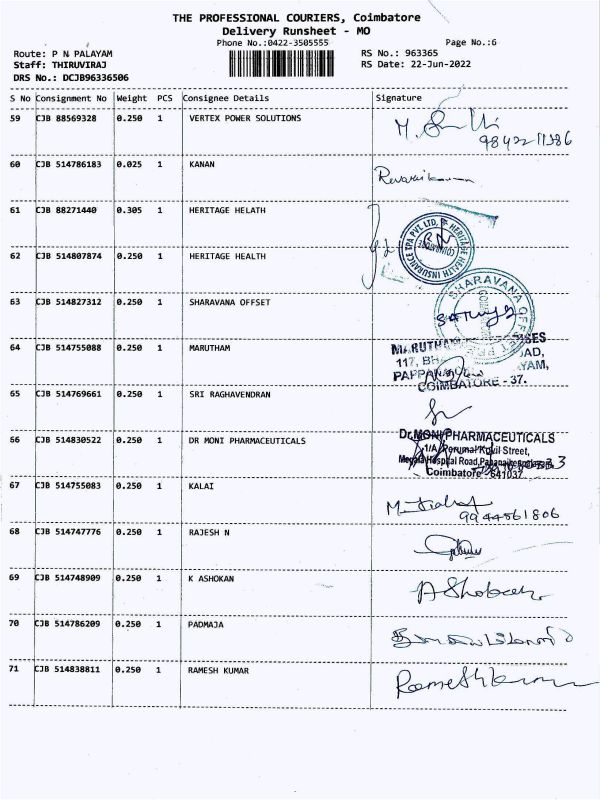 THE PROFESSIONAL COURIERS, Coimbatore
Delivery Runsheet - MO
Phone No.:0422-3505555 Page No.:6
Route: P N PALAYAM RS No.: 963365
Staff: THIRUVIRAJ RS Date: 22-Jun-2022
DRS No.: DCJB96336506
S No Consignment No Weight PCS Consignee Details Signature
59 CJB 88569328 0.250 1 VERTEX POWER SOLUTIONS
60 CJB 514786183 0.025 1 KANAN
61 CJB 88271440 0.305 1 HERITAGE HELATH
HERITAGE HEALTH INSURANCE TPA PVT LTD, COIMBATORE
62 CJB 514807874 0.250 1 HERITAGE HEALTH
63 CJB 514827312 0.250 1 SHARAVANA OFFSET
SHARAVANA OFFSET
64 CJB 514755088 0.250 1 MARUTHAM
117,
COIMBATORE - 37.
65 CJB 514769661 0.250 1 SRI RAGHAVENDRAN
66 CJB 514830522 0.250 1 DR MONI PHARMACEUTICALS
Dr.MONI PHARMACEUTICALS
1/A, Perumal Kovil Street,
Hospital Road,
Coimbatore - 641037
67 CJB 514755083 0.250 1 KALAI
9944561806
68 CJB 514747776 0.250 1 RAJESH N
69 CJB 514748909 0.250 1 K ASHOKAN
70 CJB 514786209 0.250 1 PADMAJA
71 CJB 514838811 0.250 1 RAMESH KUMAR